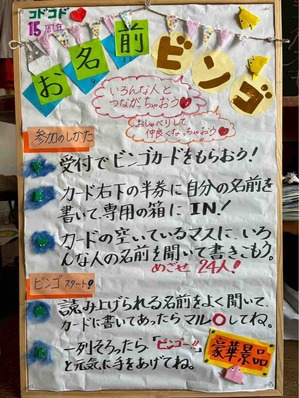 コドコド
15周年
お名前ビンゴ
いろんな人と
つながっちゃおう
おしゃべりして
仲良くなっちゃおう
参加のしかた
受付でビンゴカードをもらおう!
カード右下の半券に自分の名前を
書いて、専用の箱にIN!
カードの空いているマスに、いろ
んな人の名前を聞いて書きこもう。
めざせ 24人!
ビンゴスタート!
読み上げられる名前をよく聞いて、
カードに書いてあったらマル○してね。
一列そろったら「ビンゴー!!」
と元気に手をあげてね。
豪華景品